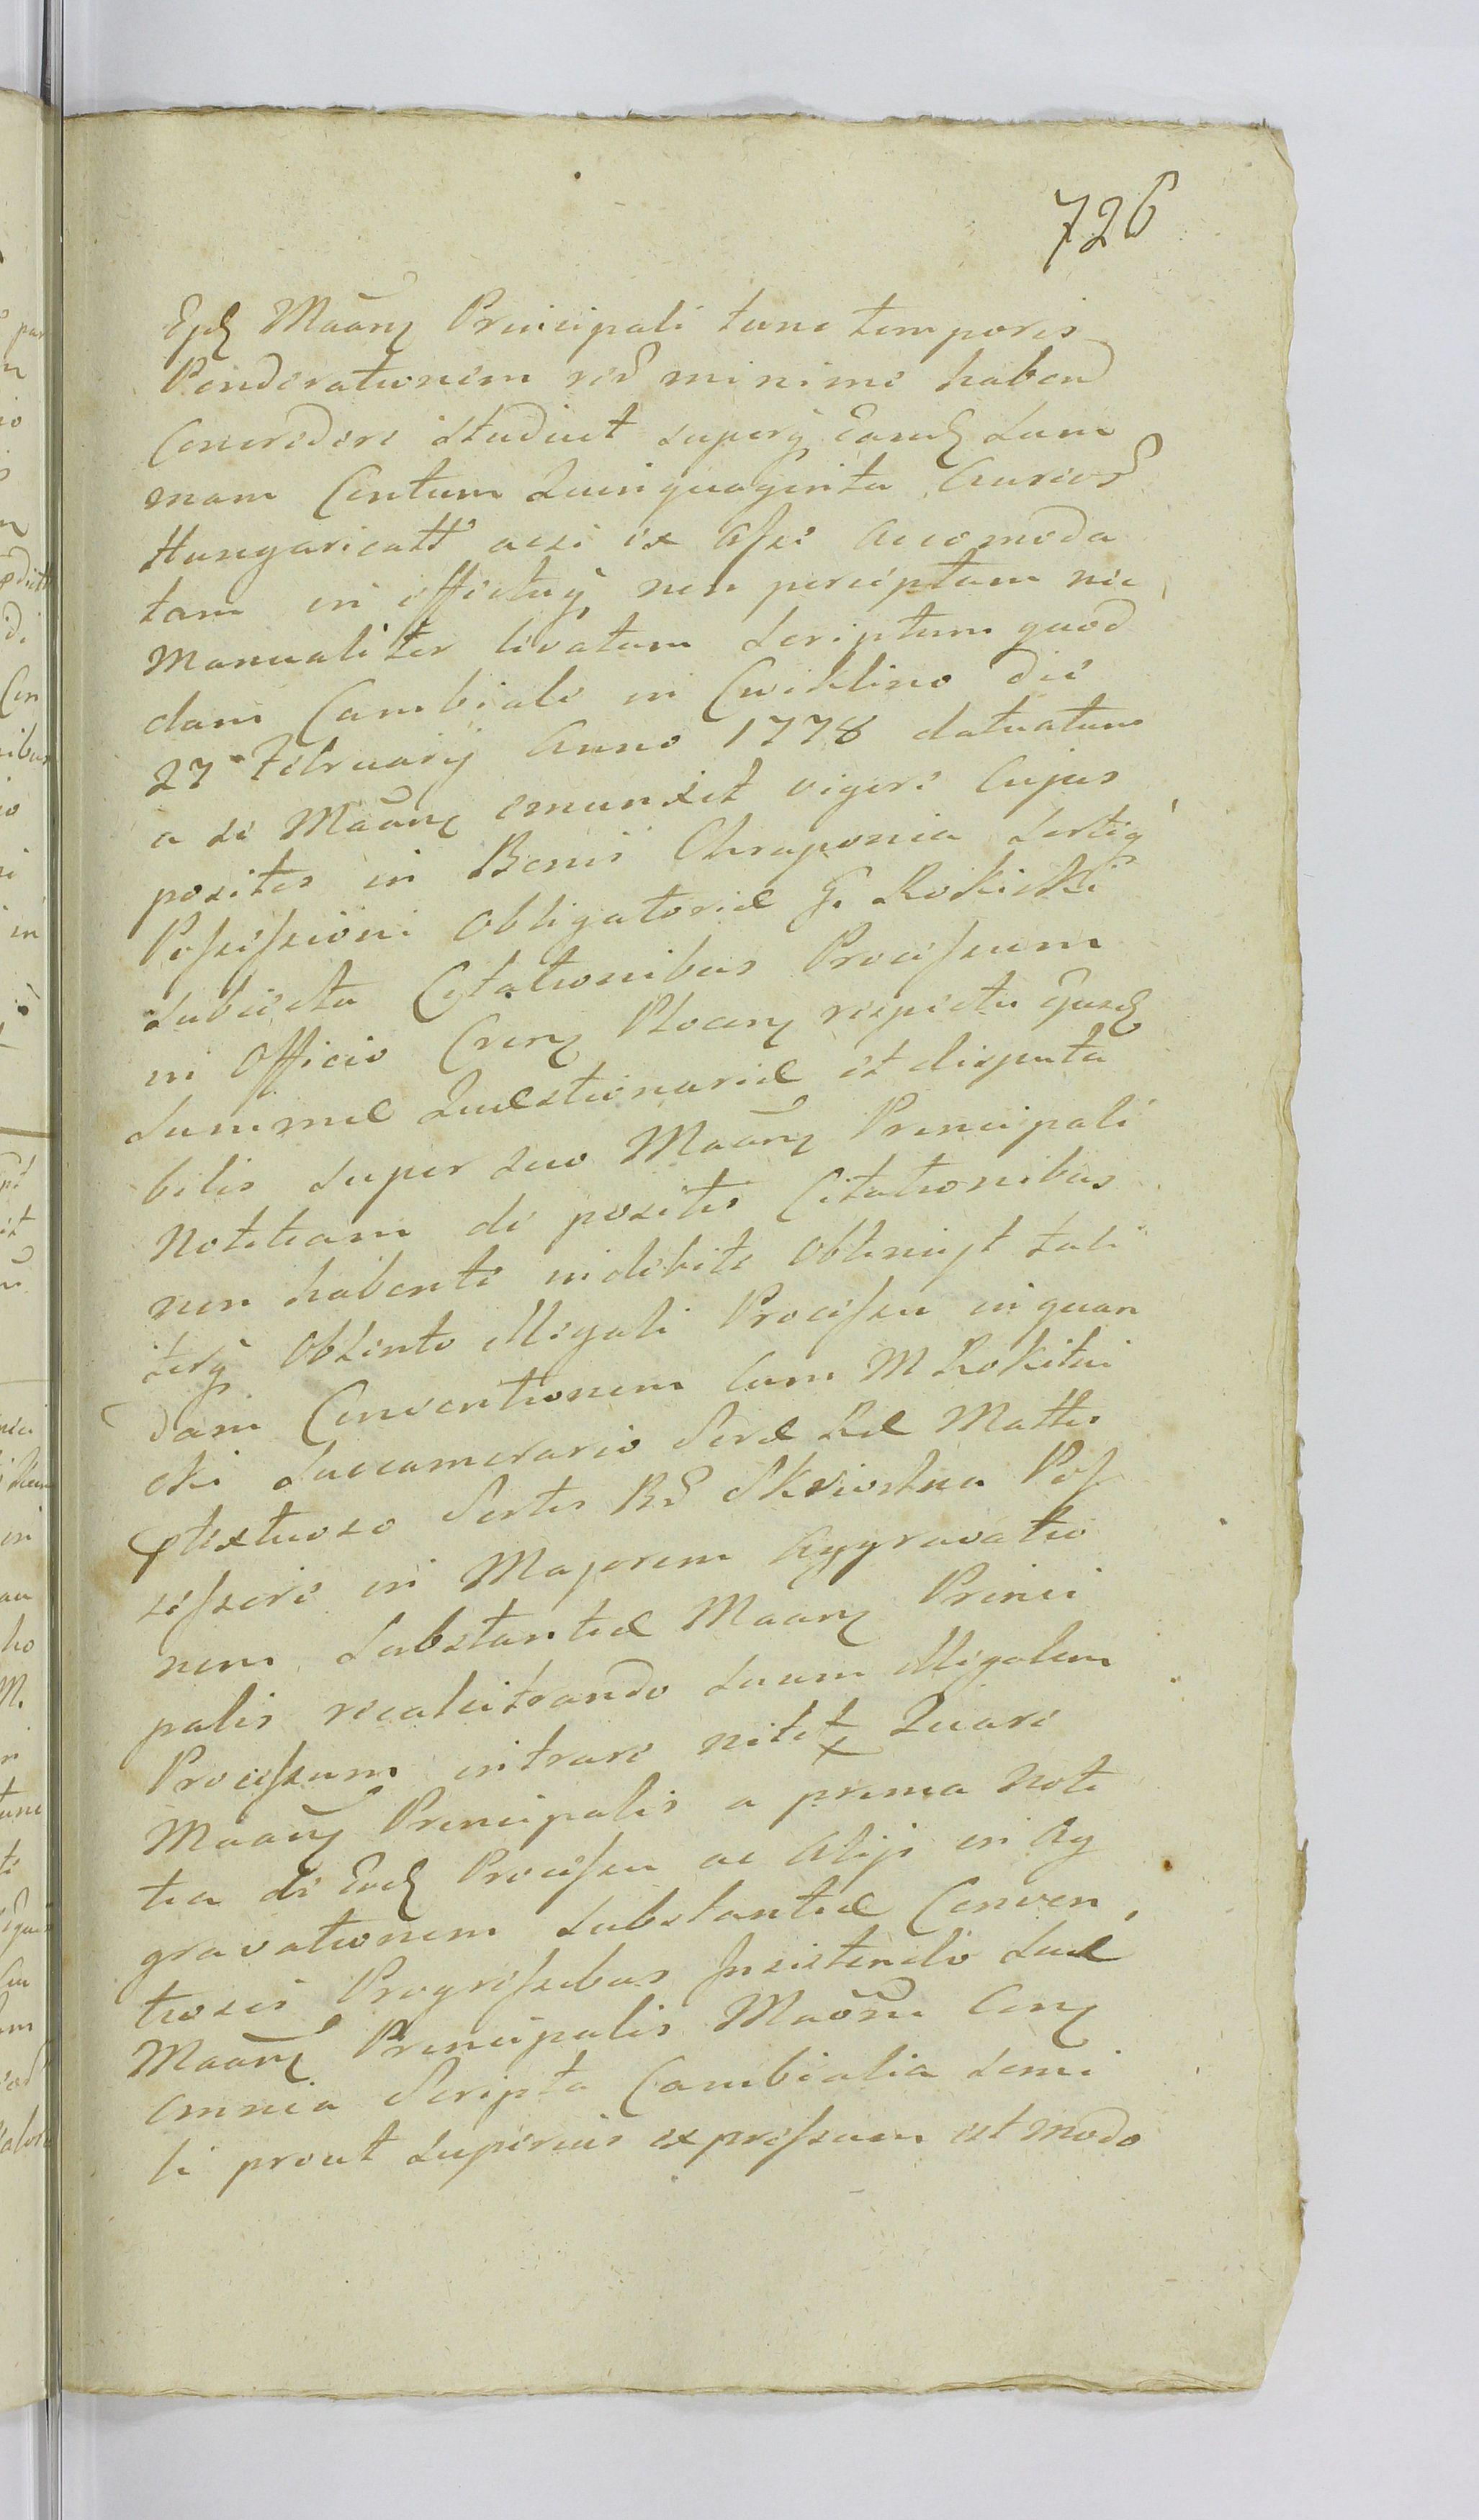 726
Ejd Maanz Principali tunc temporis
Ponderationem red minime habend
Concredere studuit superq Eand Sum
mam Centum Quinquaginta Aureor
Hungaricall acsi ex asse accomoda
tam in effectuq non perceptam nec
Manualiter levatam Scriptum quod
dam Cambiale in Cwiklino die
27 February Anno 1778 datuatum
a se Maanz emunxit vigore Cujus
positis in Bonis Chraponia Sortiq
Possessioni Obligatoriæ G. Rokicki
Subiecta Cytationibus Processum
in Officio Crenz Plocenz respectu Ejusd
Summæ Quæstionariæ et disputa
bilis super quo Maanz Principali
Notitiam de positis Citationibus
non habente indebite obtinuit tali
terq Obtento Illegali Processu in quan
dam Conventionem cum M Rokitni
cki Succamerario Seræ Ræ Mattis
ptextuoso Sortis Br Skwiostwa Pos
sessore in Majorem Aggravatio
nem Substantiæ Maanz Princi
palis recalcitrando suum Illegalem
Processum intrare nitet Quare
Maanz Principalis a prima noti
tia de Eod Processu ac Alijs in Ag
gravationem Substantiæ Conven
tiosis Progressibus Insistendo Suæ
Maanz Principalis Maōni Conz
omnia Scripta Cambialia Simi
li prout superius expressum est modo